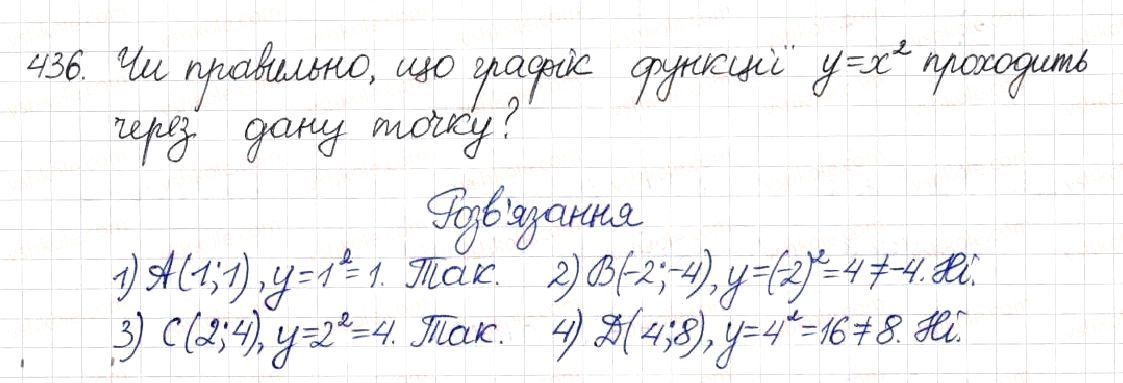 436. Чи правильно, що графік функції y=x² проходить
через дану точку?
Розв'язання
1) A(1;1), y=1²=1. Так. 2) B(-2;-4), y=(-2)²=4≠-4. Ні.
3) C(2;4), y=2²=4. Так. 4) D(4;8), y=4²=16≠8. Ні.